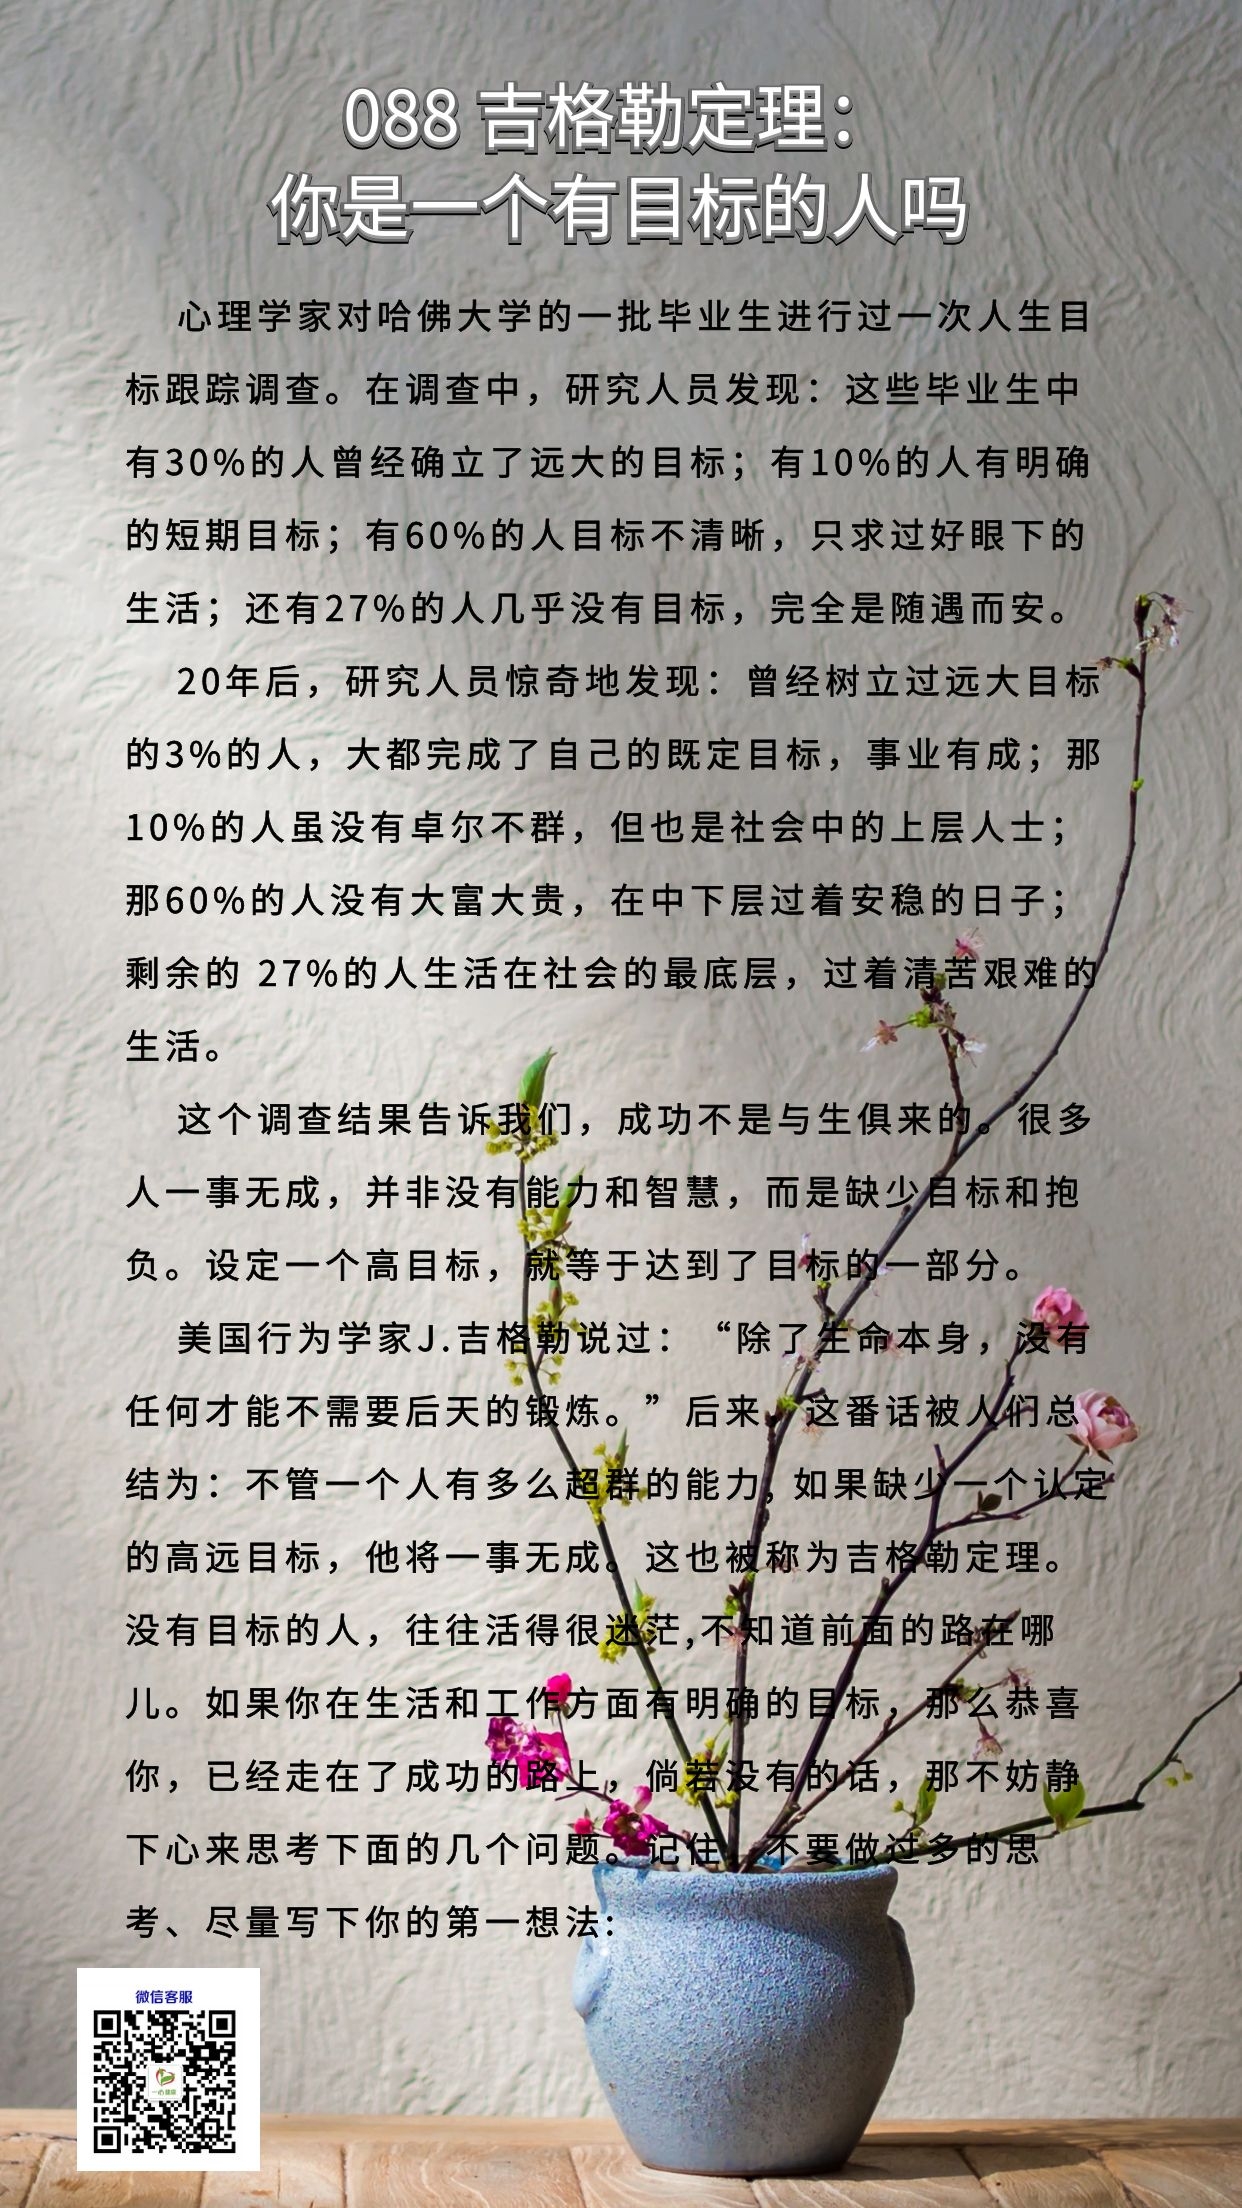 088 吉格勒定理：
你是一个有目标的人吗
心理学家对哈佛大学的一批毕业生进行过一次人生目
标跟踪调查。在调查中，研究人员发现：这些毕业生中
有30%的人曾经确立了远大的目标；有10%的人有明确
的短期目标；有60%的人目标不清晰，只求过好眼下的
生活；还有27%的人几乎没有目标，完全是随遇而安。
20年后，研究人员惊奇地发现：曾经树立过远大目标
的3%的人，大都完成了自己的既定目标，事业有成；那
10%的人虽没有卓尔不群，但也是社会中的上层人士；
那60%的人没有大富大贵，在中下层过着安稳的日子；
剩余的 27%的人生活在社会的最底层，过着清苦艰难的
生活。
这个调查结果告诉我们，成功不是与生俱来的。很多
人一事无成，并非没有能力和智慧，而是缺少目标和抱
负。设定一个高目标，就等于达到了目标的一部分。
美国行为学家J.吉格勒说过：“除了生命本身，没有
任何才能不需要后天的锻炼。”后来，这番话被人们总
结为：不管一个人有多么超群的能力, 如果缺少一个认定
的高远目标，他将一事无成。这也被称为吉格勒定理。
没有目标的人，往往活得很迷茫,不知道前面的路在哪
儿。如果你在生活和工作方面有明确的目标，那么恭喜
你，已经走在了成功的路上，倘若没有的话，那不妨静
下心来思考下面的几个问题。记住，不要做过多的思
考、尽量写下你的第一想法:
微信客服
一心健康